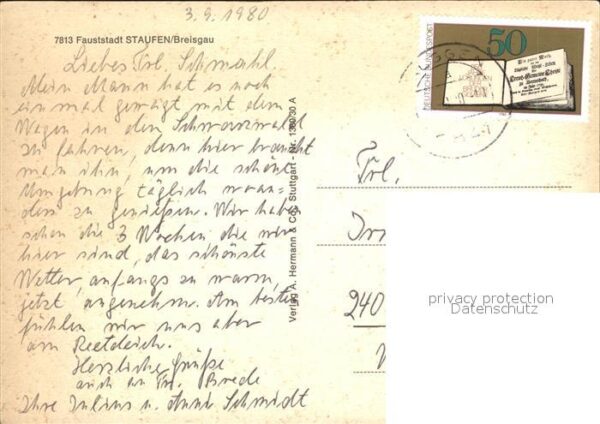 3.9.1980
7813 Fauststadt STAUFEN/Breisgau
Liebes Frl. Schmahl.
Mein Mann hat es noch
einmal gewagt mit dem
Wagen in den Schwarzwald
zu fahren, denn hier braucht
man ihn, um die schöne
Umgebung täglich woan-
ders zu genießen. Wir haben
schon die 3 Wochen, die wir
hier sind, das schönste
Wetter, anfangs zu warm,
jetzt angenehm. Am besten
fühlen wir uns aber
am Reetdeich.
Herzliche Grüße
auch an Frl. Brede
Ihre Julius u. Anni Schmidt
Verlag A. Hermann & Co, Stuttgart - Nr.
DEUTSCHE BUNDESPOST
50
Frl.
240
privacy protection
Datenschutz